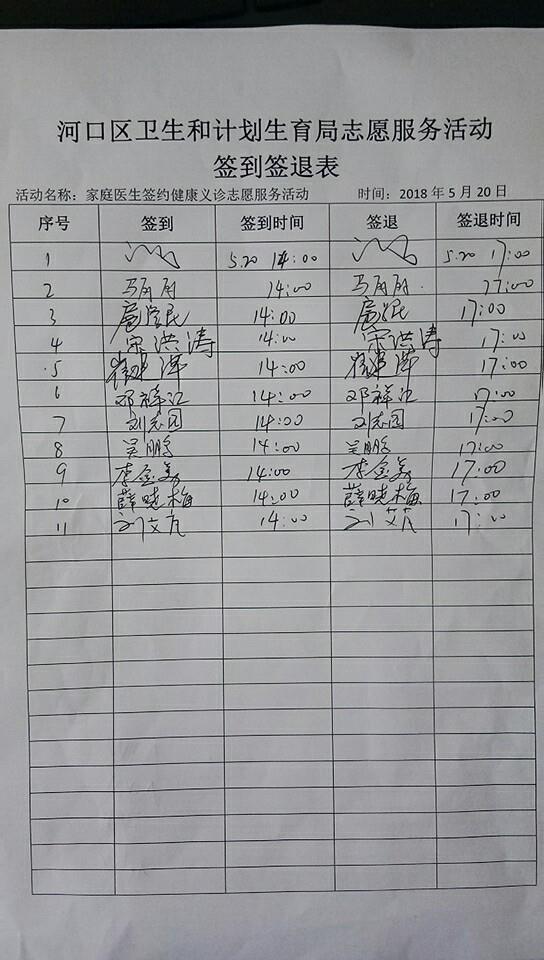 河口区卫生和计划生育局志愿服务活动
签到签退表
活动名称：家庭医生签约健康义诊志愿服务活动 时间：2018年5月20日
序号 签到 签到时间 签退 签退时间
1 5.20 14:00 5.20 17:00
2 14:00 17:00
3 14:00 17:00
4 宋洪涛 14:00 宋洪涛 17:00
5 14:00 17:00
6 邓祥江 14:00 邓祥江 17:00
7 刘志国 14:00 刘志国 17:00
8 吴鹏 14:00 吴鹏 17:00
9 李金美 14:00 李金美 17:00
10 薛晓梅 14:00 薛晓梅 17:00
11 14:00 17:00